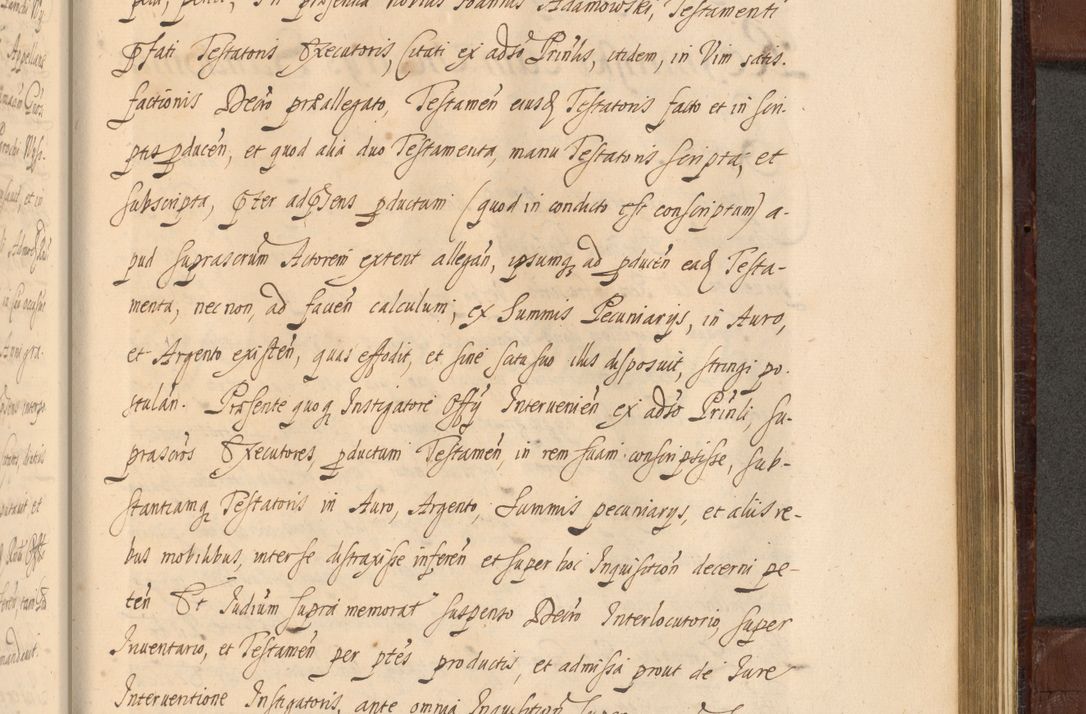 petit, in præsentia Nobilis Joannis Adamowski, Testamenti
Pfati Testatoris Executoris, Citati ex adso Prinlis, itidem, in Vim satis-
factionis Decro præallegato, Testamen eiusq Testatoris facto et in scri-
ptis pducen, et quod alia duo Testamenta, manu Testatoris scripta, et
subscripta, pter adpsens pductum (quod in conducto est conscriptum) a-
pud suprascrum Actorem extent allegan, ipsumq ad pducen eadq Testa-
menta, necnon, ad faven calculum, ex Summis Pecuniarijs, in Auro,
et Argento existen, quas effodit, et sine scitu suo illis disposuit, stringi po-
stulan. Præsente quoq Instigatore Offij Intervenien ex adso Prinli, su-
prascros Executores, pductum Testamen, in rem suam conscripsisse, sub-
stantiamq Testatoris in Auro, Argento, Summis pecuniarijs, et aliis re-
bus mobilibus, inter se distraxisse inferen et super hoc Inquisition decerni pe-
ten Et Iudium supra memorat suspenso Decro Interlocutorio, super
Inventario, et Testamen per ptes productis, et admissa prout de Iure
Interventione Instigatoris, ante omnia Inquisitionem super